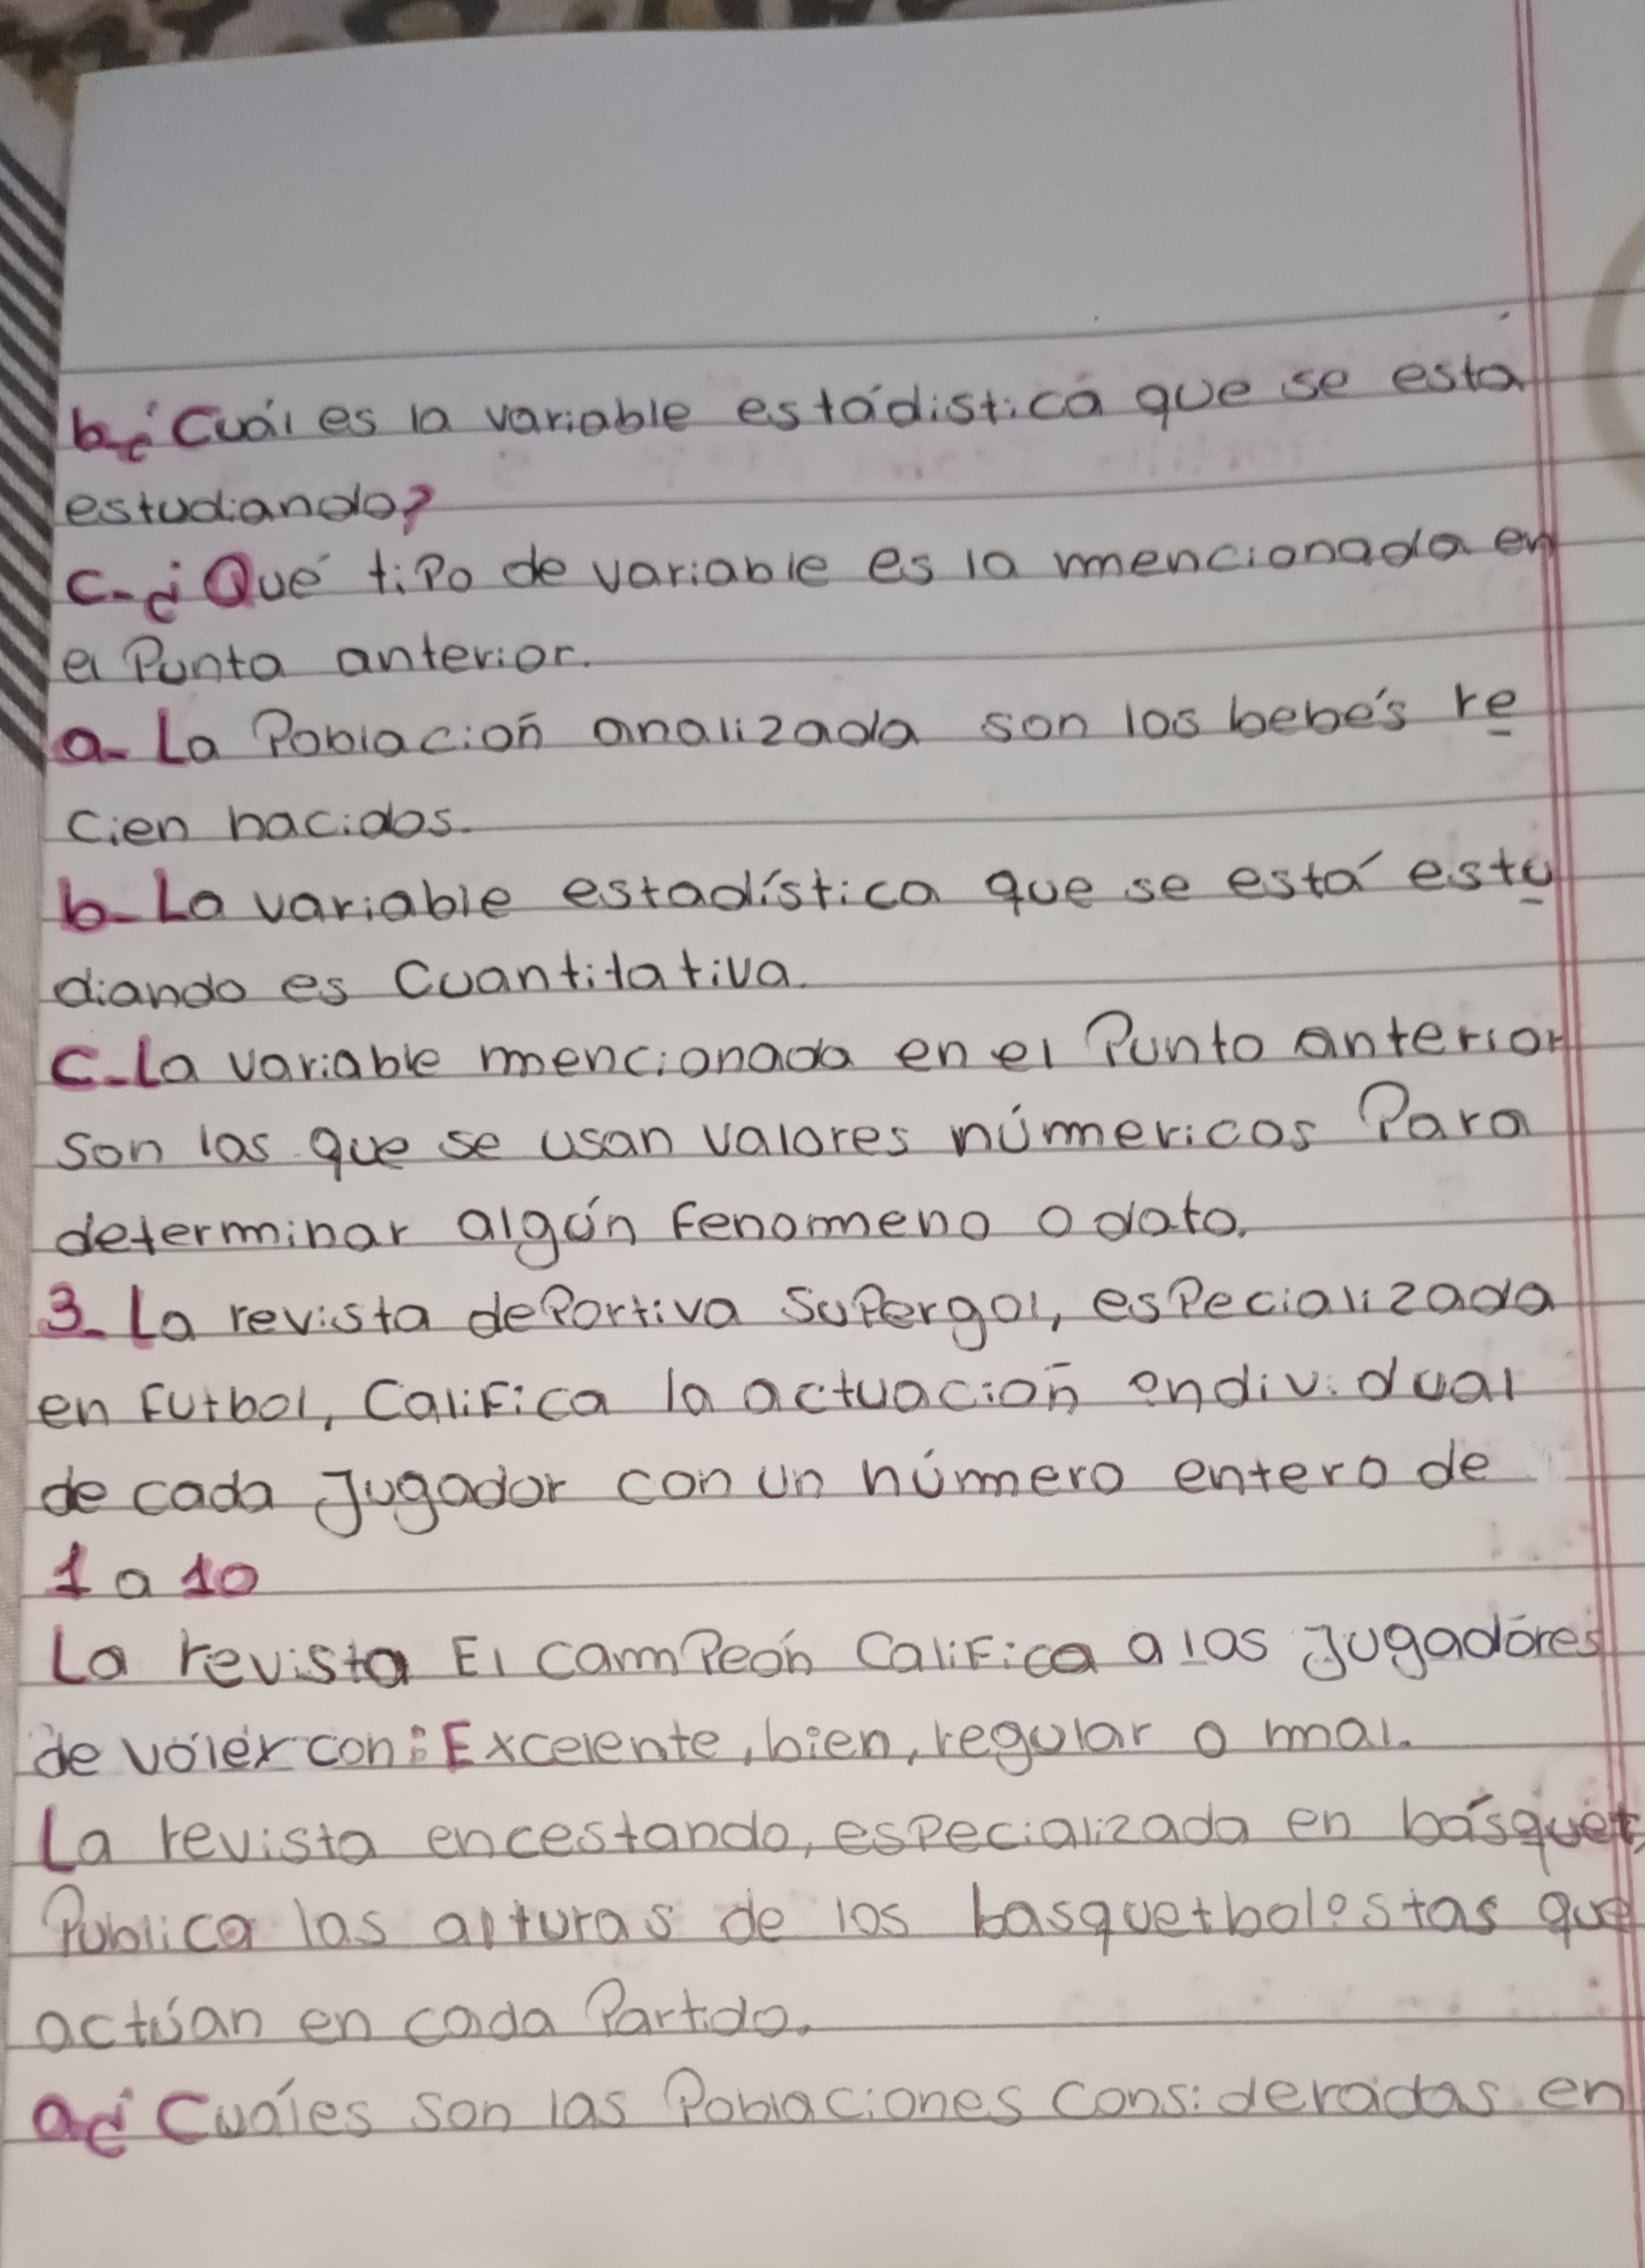 b.¿Cuál es la variable estadística que se esta
estudiando?
C-¿Qué tipo de variable es la mencionada en
el Punto anterior.
a- La Población analizada son los bebés re
cien nacidos.
b- La variable estadística que se está estu
diando es Cuantitativa.
C-La variable mencionada en el Punto anterior
son las que se usan valores númericos Para
determinar algún Fenomeno o dato.
3- La revista dePortiva SuPergol, esPecializada
en Futbol, CaliFica la actuación individual
de cada Jugador con un número entero de
1 a 10
La revista El camPeón CaliFica a los Jugadores
de voley con: Excelente, bien, regular o mal.
La revista encestando, esPecializada en básquet,
Publica las alturas de los basquetbolistas que
actúan en cada Partido.
a¿ Cuáles son las Poblaciones consideradas en